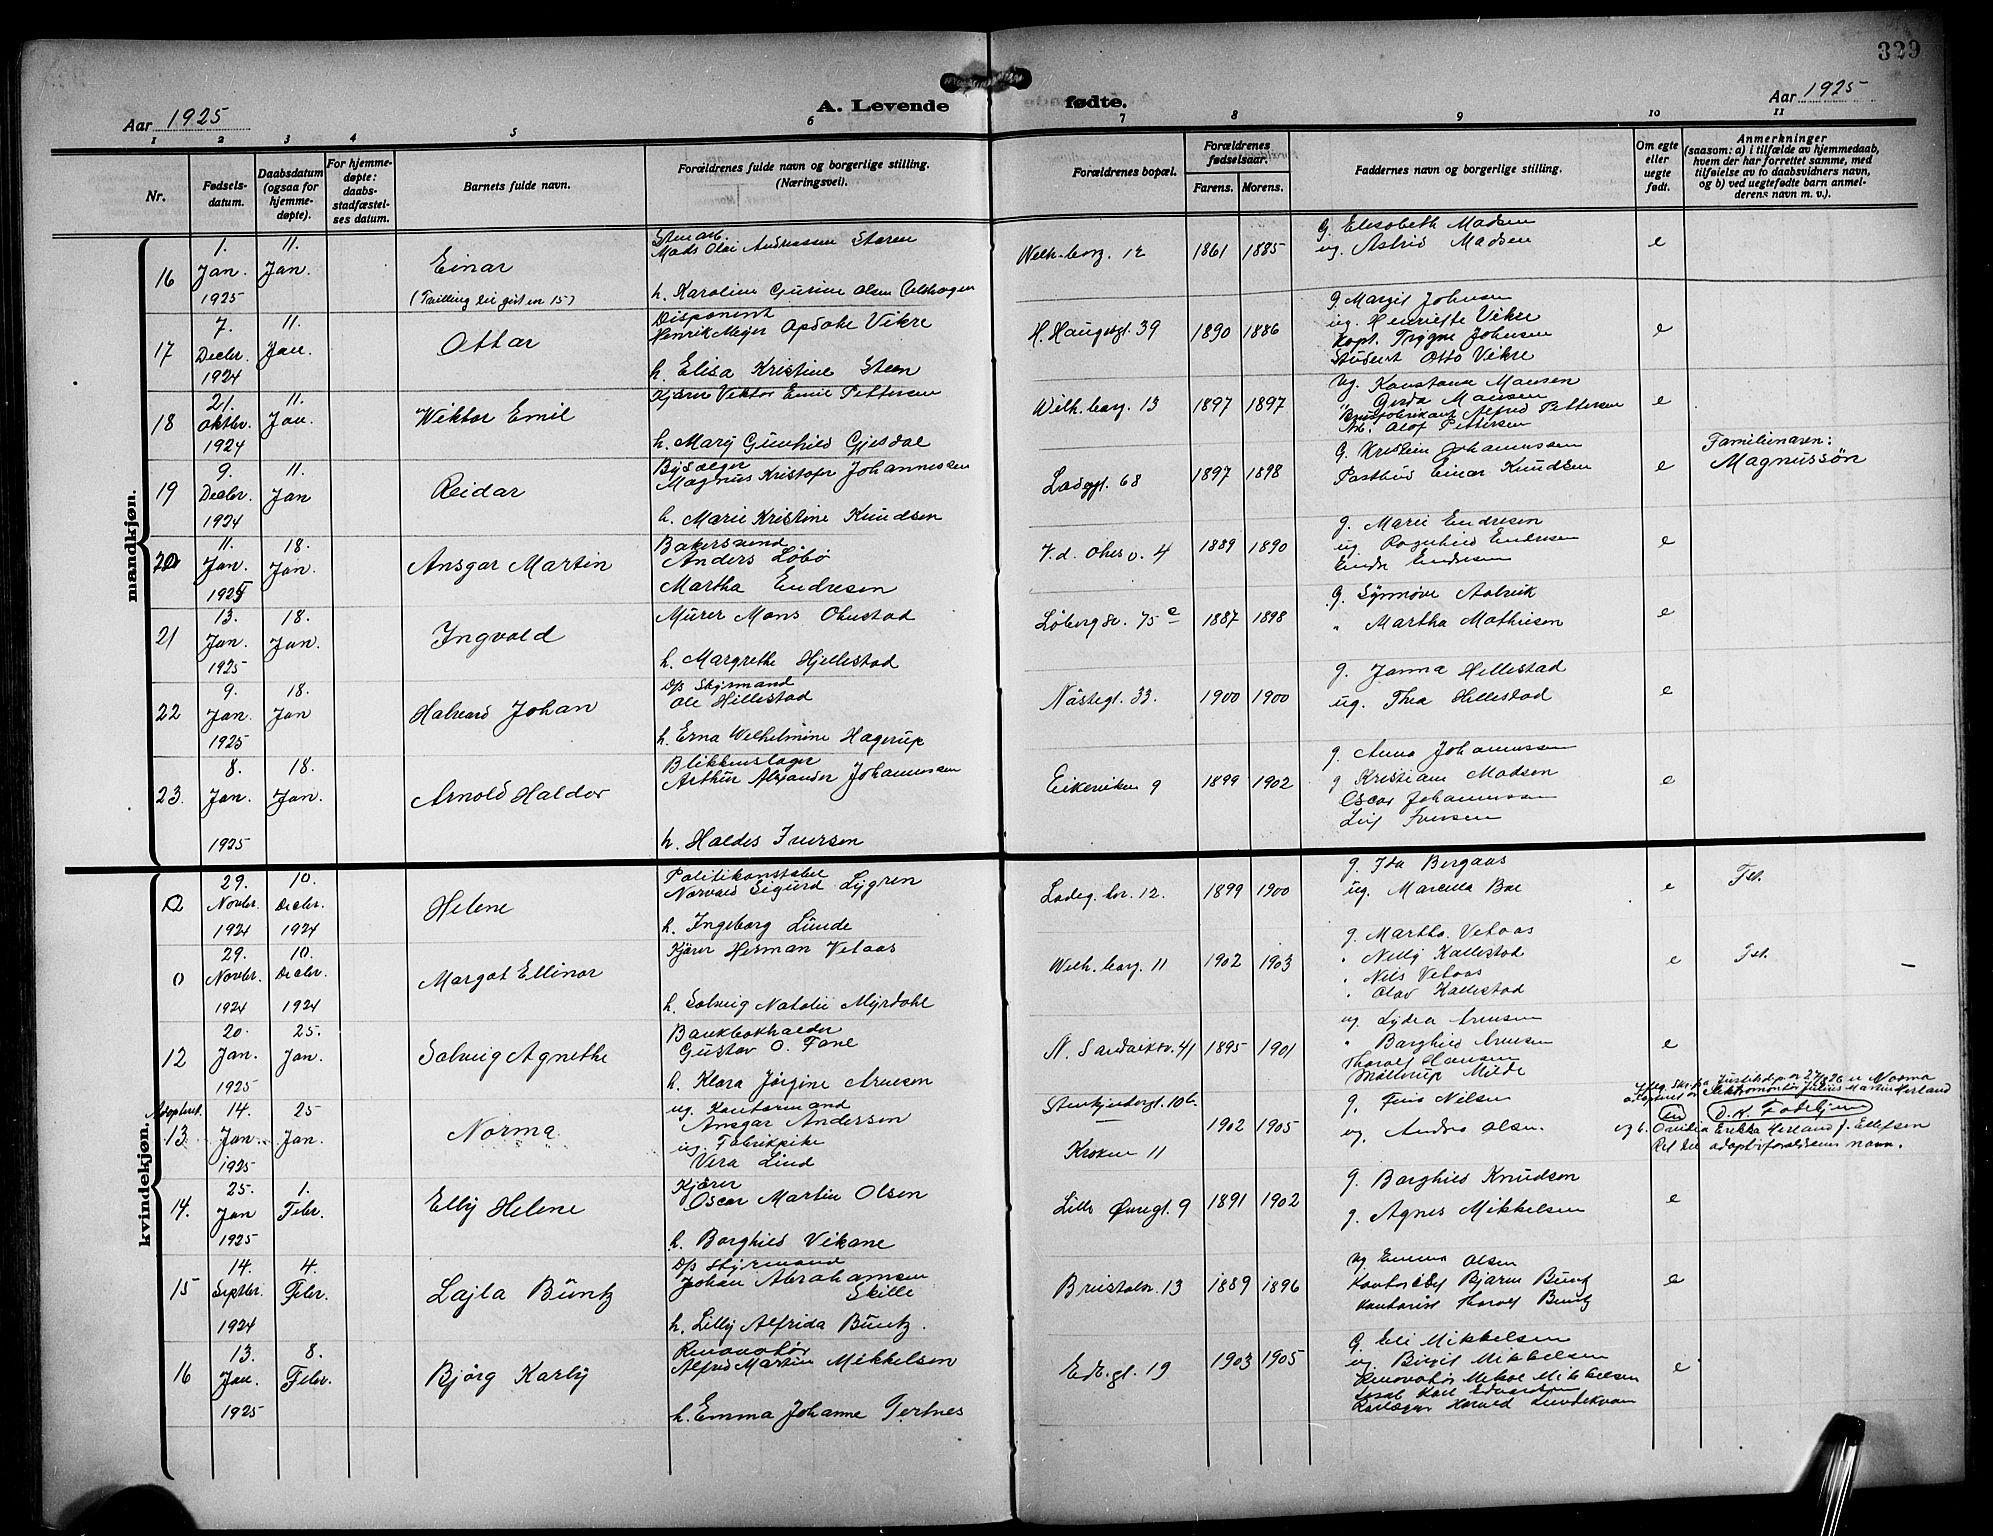 329
Aar 1925
A. Levende
fødte.
Aar 1925
1 2 3 4 5 6 7 8 9 10 11
Nr.
Fødsels-
datum.
Daabsdatum
(ogsaa for
hjemme-
døpte).
For hjemme-
døpte:
daabs-
stadfæstel-
ses datum.
Barnets fulde navn.
Forældrenes fulde navn og borgerlige stilling.
(Næringsvei).
Forældrenes bopæl.
Forældrenes
fødselsaar.
Farens. Morens.
Faddernes navn og borgerlige stilling.
Om egte
eller
uegte
født.
Anmerkninger
(saasom: a) i tilfælde av hjemmedaab,
hvem der har forrettet samme, med
tilføielse av to daabsvidners navn,
og b) ved uegtefødte barn anmel-
derens navn m. v.).
mandkjøn.
16
1.
Jan.
1925
11.
Jan.
Einar
(Tvilling til gut nr 15)
Mads Olai Andreassen Støren
h. Karoline Gurine Olsen
Wilh. barg. 12
1861 1885
g. Elisabeth Madsen
ug. Astrid Madsen
e
17
7.
Decbr.
1924
11.
Jan.
Ottar
Disponent
Henrik Meyer Opdahl Vikre
h. Elisa Kristine Steen
H. Haugesgt. 39
1890 1886
g. Margit Johnsen
ug. Henriette Vikre
Kapt. Trygve Johnsen
Student Otto Vikre
e
18
21.
Oktbr.
1924
11.
Jan.
Wiktor Emil
Kjører Viktor Emil Pettersen
h. Mary Gunhild Gjesdal
Wilh. barg. 13
1897 1897
ug. Konstanse Monsen
" Gerda Monsen
Alfred Pettersen
Olof Pettersen
e
19
9.
Decbr.
1924
11.
Jan
Reidar
Bysælger
Magnus Kristofer Johannessen
h. Marie Kristine Knudsen
Ladegt. 68
1897 1898
g. Kristine Johannessen
Postbud Einar Knudsen
e
Familienavn:
Magnussøn
20
11.
Jan.
1925
18.
Jan.
Ansgar Martin
Bakersvend
Anders Løbø
Martha Endresen
1889 1890
g. Marie Endresen
ug. Ragnhild Endresen
Endre Endresen
e
21
13.
Jan.
1925
18.
Jan.
Ingvald
Murer Mons Ohnstad
h. Margrethe Hjellestad
Løbergsv. 75 e
1887 1898
g. Synnøve Aalvik
" Martha Mathisen
e
22
9.
Jan.
1925
18.
Jan
Halvard Johan
D/s Styrmand
Ole Hillestad
h. Erna Wilhelmine Hagerup
Nøstegt. 33.
1900 1900
g. Janna Hellestad
ug. Thea Hellestad
e
23.
8.
Jan.
1925
18.
Jan.
Arnold Haldor
Blikkenslager
Arthur Alexander Johannessen
h. Haldis Iversen
Eikeviken 9
1899 1902
g. Anna Johannessen
g Kristiane Madsen
Oscar Johannessen
Leif Iversen
e
kvindekjøn.
0
29.
Novbr.
1924
10.
Decbr.
1924
Helene
Politikonstabel
Norvald Sigurd Lygren
h. Ingeborg Lunde
Ladeg. br. 12.
1899 1900
g. Ida Bergaas
ug. Marcella Boe
e
Fst.
0
29.
Novbr.
1924
10.
Decbr.
1924
Margot Ellinor
Kjører Herman Vetaas
h. Solveig Natalie Myrdahl
Wilh. barg. 11
1902 1903
g. Martha Vetaas
" Nelly Kallestad
" Nils Vetaas
" Olav Kallestad
e
Fst.
12
20.
Jan.
1925
25.
Jan.
Solveig Agnethe
Bankbokholder
Gustav O. Fane
h. Klara Jørgine Arnesen
N. Sandvikv. 41
1895 1901
ug. Lydia Arnesen
" Borghild Arnesen
Harald Hansen
Møllerup Milde
e
Adoptert.
13
14.
Jan.
1925
25
Jan.
Norma
ug. Kontormand
Ansgar Andersen
ug Fabrikpike
Vera Lind
Stenkjeldergt. 10 b.
Kroken 11
1902 1905
g. Finn Nilsen
ug. Andrea Olsen.
og h. Ovidia Erikka Herland f. Ellefsen
Ret til adoptivforældrenes navn.
14.
25.
Jan
1925
1.
Febr.
Elly Helene
Kjører
Oscar Martin Olsen
h. Borghild Vikane
Lille Øvregt. 9
1891 1902
g. Borghild Knudson
g. Agnes Mikkelsen
e
15
14.
Septbr.
1924
4.
Febr.
Lajla Büntz
D/s Styrmand
Johan Abrahamsen
Skille
h. Lilly Alfrida Büntz.
Bristolv. 13
1889 1896
ug Emma Olsen
Kontorchef Bjarne Buntz
Kontorist Harald Buntz
e
16
13.
Jan.
1925
8.
Febr.
Bjørg Karly
Renovatør
Alfred Martin Mikkelsen
h. Emma Johanne Tertnes
Edv. gt. 19
1903 1905
g. Eli Mikkelsen
ug. Birgit Mikkelsen
Renovatør Mikal Mikkelsen
Karl Edvardsen
Harald Lundekvam
e